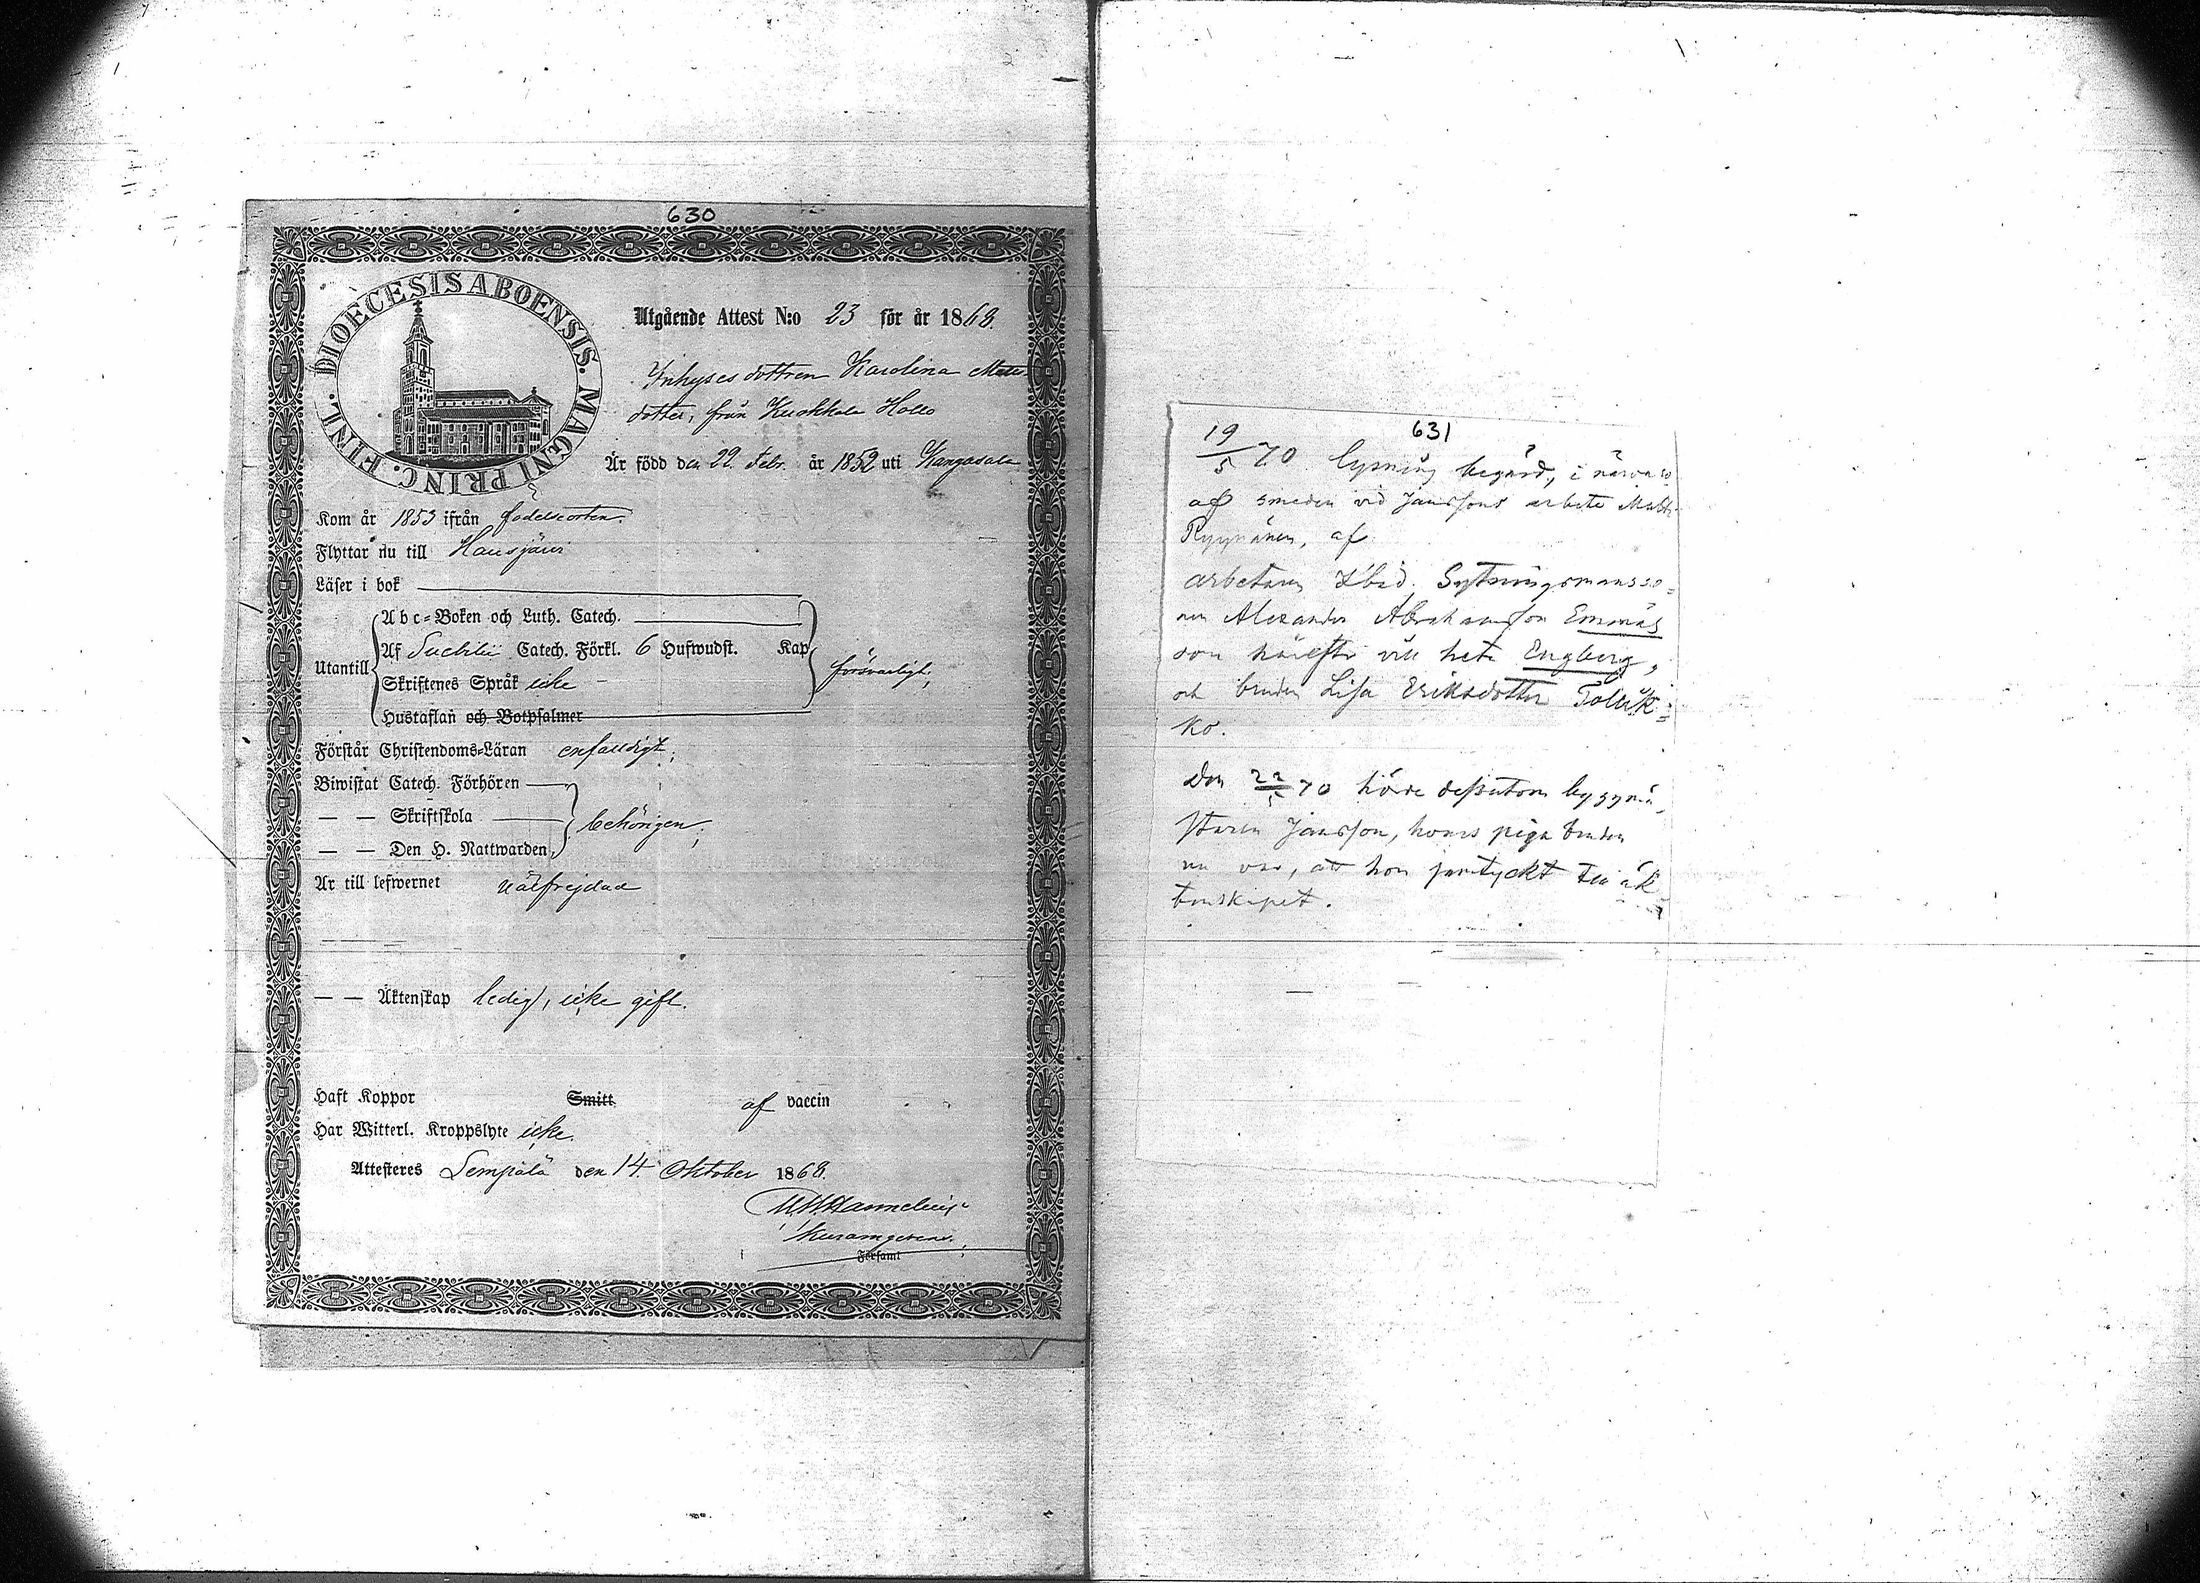 630
DIOECESIS ABOENSIS. MAGNI PRINC. FINL.
Utgående Attest N:o 23 för år 1868.
Inhyses dottren Karolina Matts
dotter, från Kuokkala Hollo
Är född den 29 Febr. år 1852 uti Kangasala
Kom år 1853 ifrån födelseorten.
Flyttar nu till Hausjärvi
Läser i bok
Utantill
Abc-Boken och Luth. Catech.
Af Svebilii Catech. Förkl. 6 Hufwudst. Kap
Skriftenes Språk icke
Hustaflan och Botpsalmer
försvarligt;
Förstår Christendoms-Läran enfaldigt;
Biwistat Catech. Förhören
— — Skriftskola
— — Den H. Nattwarden,
behörigen;
Är till lefwernet välfrejdad
— — Äktenskap ledig, icke gift.
Haft Koppor Smitt. af vaccin
Har Witterl. Kroppslyte icke.
Attesteres Lempälä den 14 Oktober 1868.
Församl
631
19/5 70 lysning begärd, i närvaro
af smeden vid Janssons arbete Matts
Ryynänen, af
arbetaren Sytningsmansso=
nen Alexander Abrahamsson Emmäs
som härefter vill heta Engberg,
och bruden Lisa Eriksdotter Tolluk=
ko.
Den 22/5 70 hörde dessutom byggmä
staren Jansson, hvars piga bruden
nu var, att hon samtyckt till äk
tenskapet.